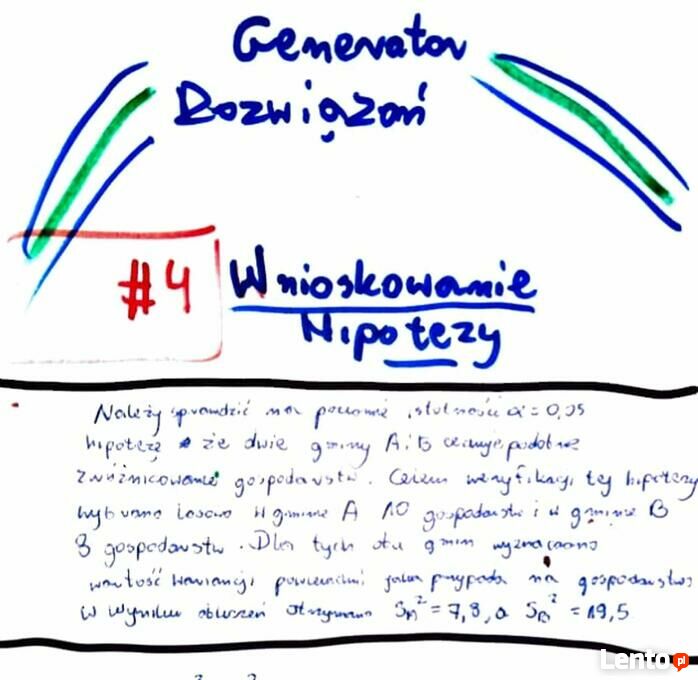 Generator
Rozwiązań
#4 Wnioskowanie
Hipotezy
Należy sprawdzić na poziomie istotności α = 0,05
hipotezę że dwie gminy A i B cechuje podobne
zróżnicowanie gospodarstw. Celem weryfikacji tej hipotezy
wybrano losowo w gminie A 10 gospodarstw i w gminie B
8 gospodarstw. Dla tych dwu gmin wyznaczono
wartość wariancji powierzchni jaka przypada na gospodarstwo
W wyniku obliczeń otrzymano S_A² = 7,8, a S_B² = 19,5.
Lento.pl